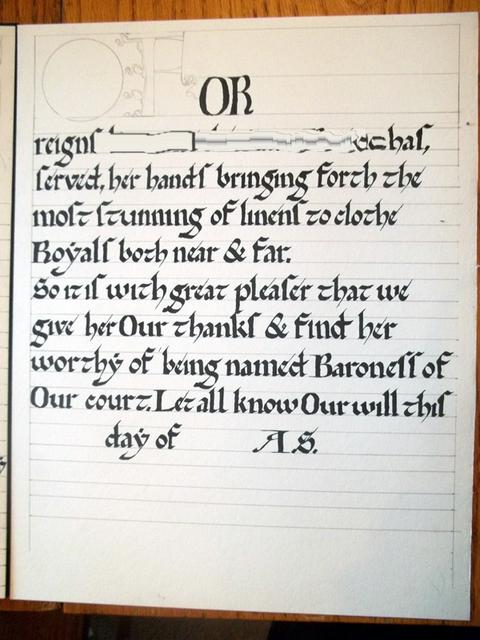 OR
reigns has,
served, her hands bringing forth the
most stunning of linens to clothe
Royals both near & far.
So it is with great pleaser that we
give her Our thanks & find her
worthy of being named Baroness of
Our court. Let all know Our will this
day of A.S.